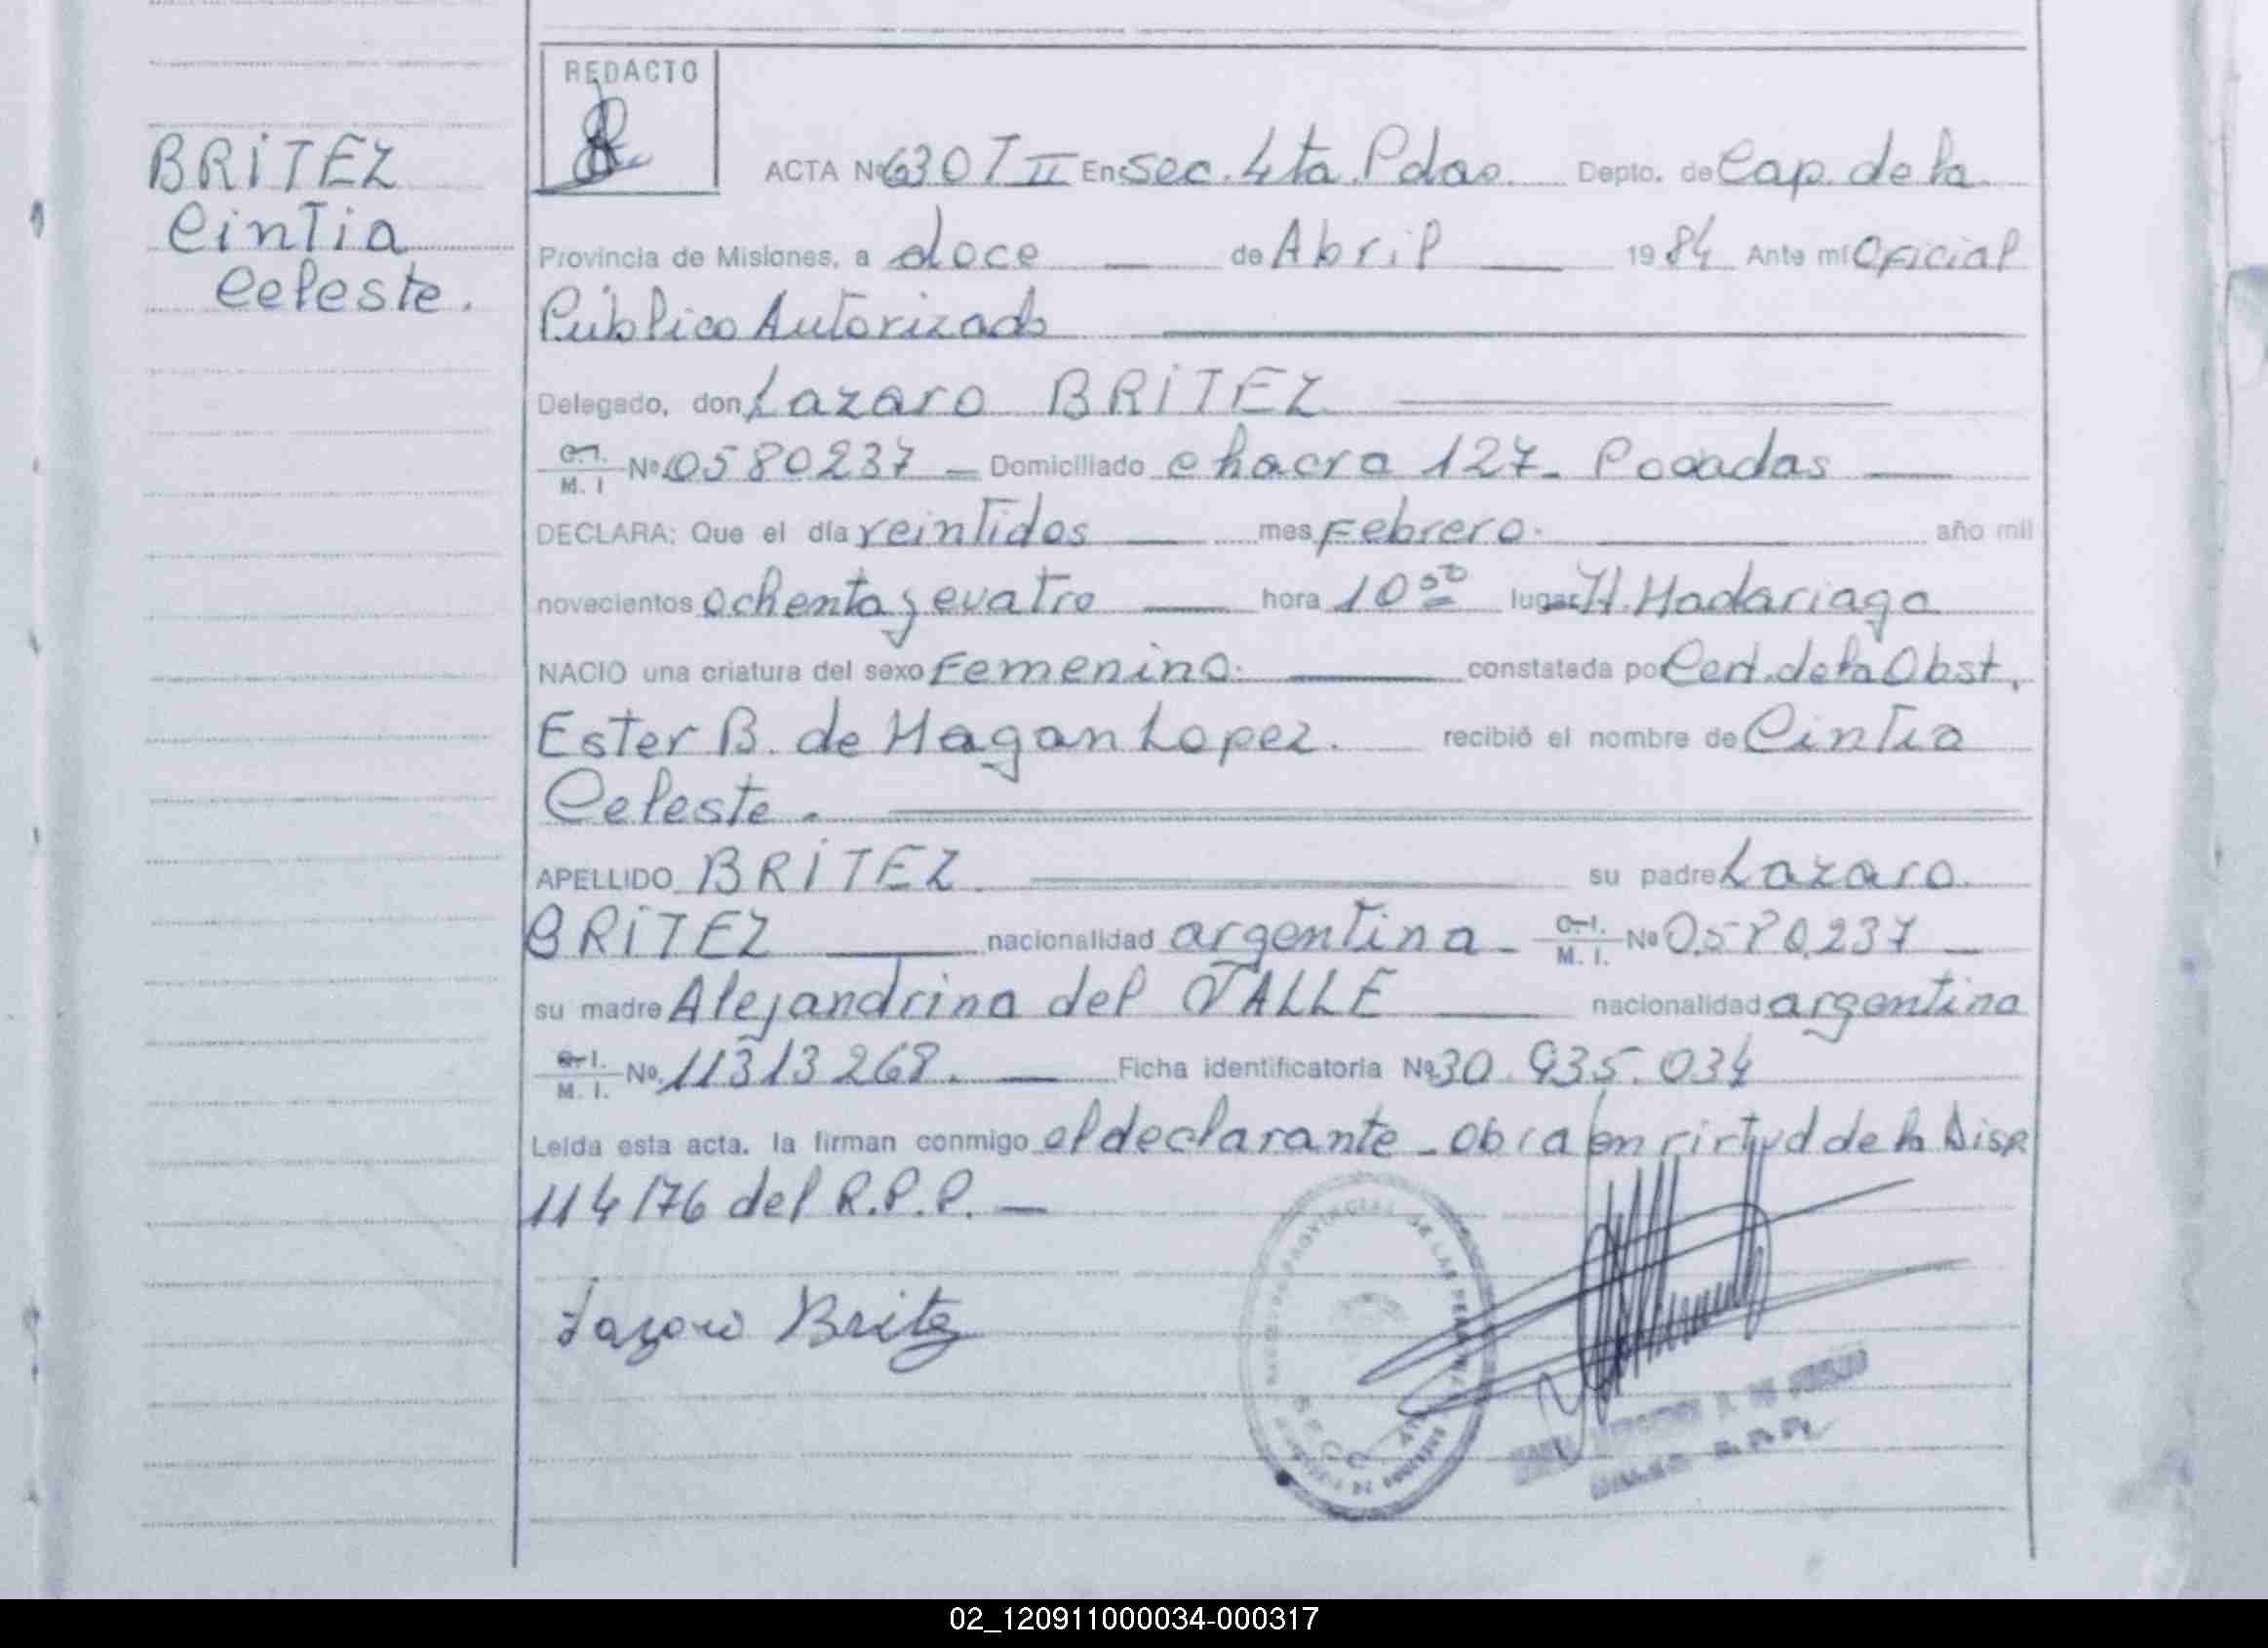 REDACTO
BRITEZ
Cintia
Celeste.
ACTA Nº 630 T II En Sec. 4ta. Pdas. Depto. de Cap. de la
Provincia de Misiones, a doce — de Abril — 1984 Ante mí Oficial
Público Autorizado
Delegado, don Lazaro BRITEZ
C.I. M.I Nº 0580237 — Domiciliado chacra 127 - Posadas —
DECLARA: Que el día veintidos — mes Febrero. — año mil
novecientos ochenta y cuatro — hora 10 00 lugar H. Madariaga
NACIO una criatura del sexo Femenino. — constatada por Cert. de la Obst.
Ester B. de Magan Lopez. recibió el nombre de Cintia
Celeste.
APELLIDO BRITEZ su padre Lazaro
BRITEZ — nacionalidad argentina - C.I. M.I. Nº 0.580.237 —
su madre Alejandrina del VALLE — nacionalidad argentina
C.I. M.I. Nº 11313268. — Ficha identificatoria Nº 30.935.034
Leída esta acta, la firman conmigo el declarante - Obra en virtud de la Disp
114/76 del R.P.P. —
Lazaro Britez
02_120911000034-000317